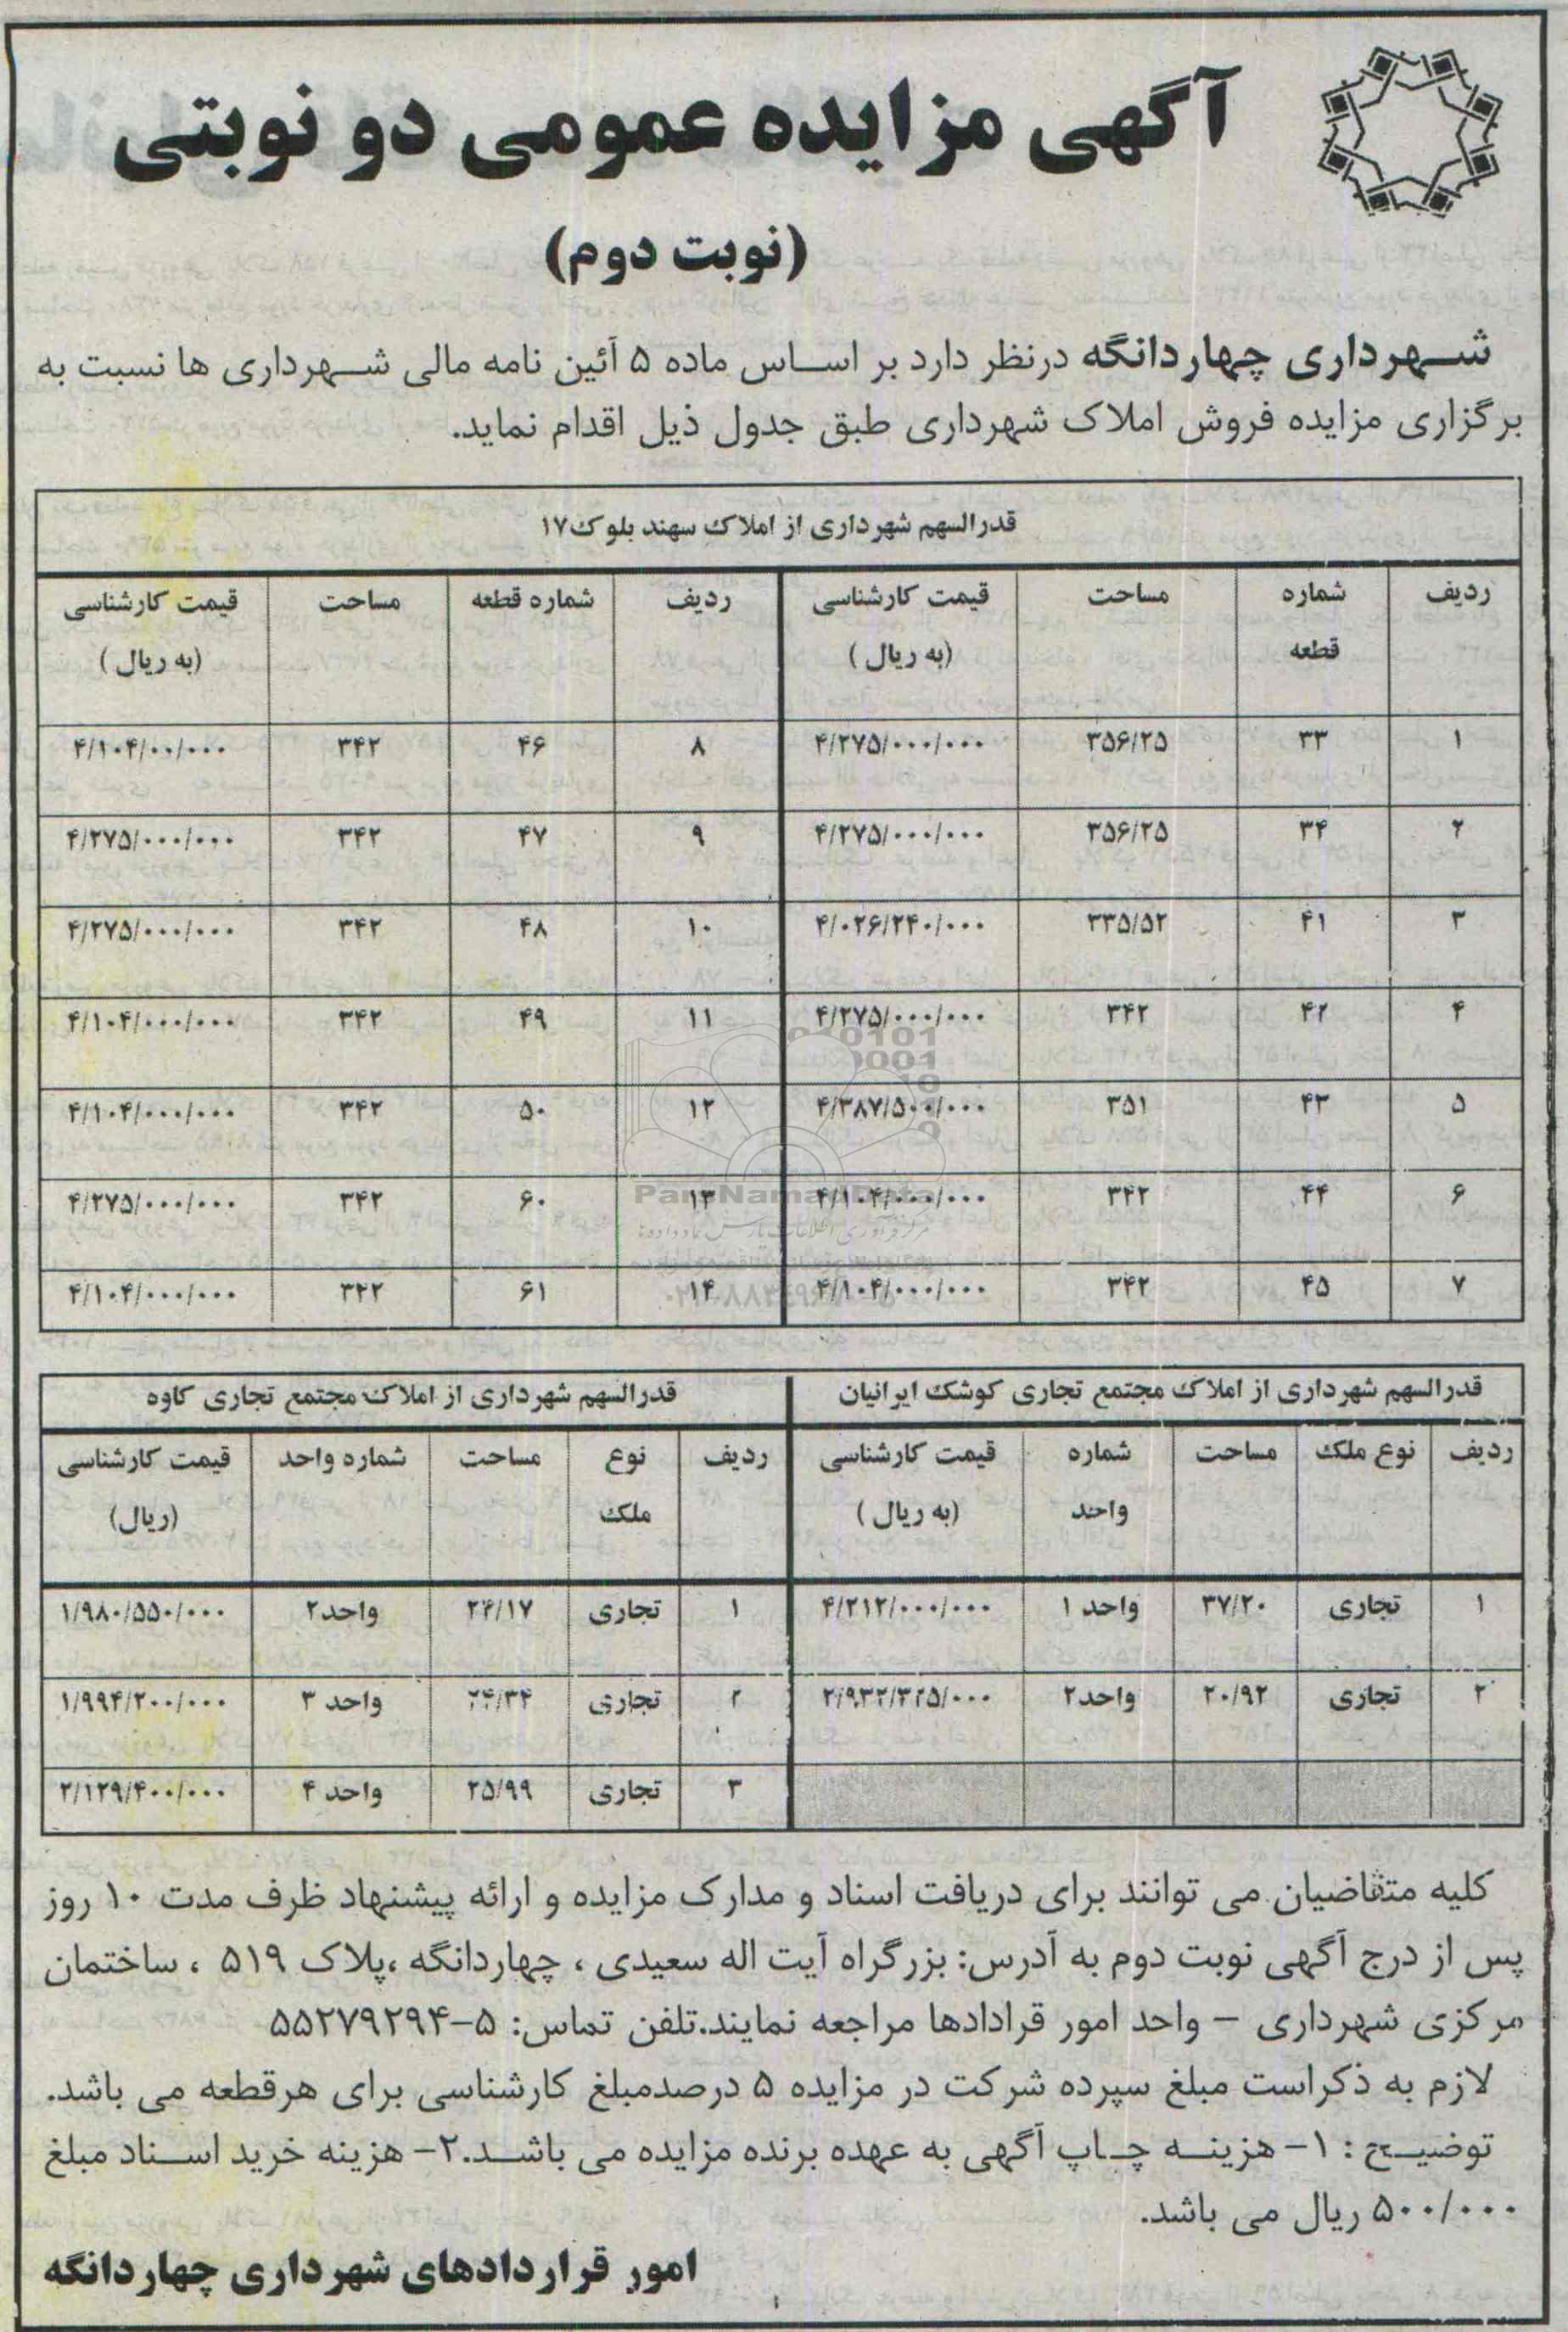 آگهی مزایده عمومی دو نوبتی
(نوبت دوم)
شهرداری چهاردانگه درنظر دارد بر اساس ماده ۵ آئین نامه مالی شهرداری ها نسبت به
برگزاری مزایده فروش املاک شهرداری طبق جدول ذیل اقدام نماید.
قدرالسهم شهرداری از املاک سهند بلوک۱۷
ردیف شماره قطعه مساحت قیمت کارشناسی (به ریال ) ردیف شماره قطعه مساحت قیمت کارشناسی (به ریال )
۱ ۳۳ ۳۵۶/۲۵ ۴/۲۷۵/۰۰۰/۰۰۰ ۸ ۴۶ ۳۴۲ ۴/۱۰۴/۰۰/۰۰۰
۲ ۳۴ ۳۵۶/۲۵ ۴/۲۷۵/۰۰۰/۰۰۰ ۹ ۴۷ ۳۴۲ ۴/۲۷۵/۰۰۰/۰۰۰
۳ ۴۱ ۳۳۵/۵۲ ۴/۰۲۶/۲۴۰/۰۰۰ ۱۰ ۴۸ ۳۴۲ ۴/۲۷۵/۰۰۰/۰۰۰
۴ ۴۲ ۳۴۲ ۴/۲۷۵/۰۰۰/۰۰۰ ۱۱ ۴۹ ۳۴۲ ۴/۱۰۴/۰۰۰/۰۰۰
۵ ۴۳ ۳۵۱ ۴/۳۸۷/۵۰۰/۰۰۰ ۱۲ ۵۰ ۳۴۲ ۴/۱۰۴/۰۰۰/۰۰۰
۶ ۴۴ ۳۴۲ ۴/۱۰۴/۰۰۰/۰۰۰ ۱۳ ۶۰ ۳۴۲ ۴/۲۷۵/۰۰۰/۰۰۰
۷ ۴۵ ۳۴۲ ۴/۱۰۴/۰۰۰/۰۰۰ ۱۴ ۶۱ ۳۴۲ ۴/۱۰۴/۰۰۰/۰۰۰
قدرالسهم شهرداری از املاک مجتمع تجاری کوشک ایرانیان قدرالسهم شهرداری از املاک مجتمع تجاری کاوه
ردیف نوع ملک مساحت شماره واحد قیمت کارشناسی (به ریال ) ردیف نوع ملک مساحت شماره واحد قیمت کارشناسی (ریال)
۱ تجاری ۳۷/۲۰ واحد ۱ ۴/۲۱۲/۰۰۰/۰۰۰ ۱ تجاری ۲۴/۱۷ واحد۲ ۱/۹۸۰/۵۵۰/۰۰۰
۲ تجاری ۲۰/۹۲ واحد۲ ۲/۹۳۲/۳۲۵/۰۰۰ ۲ تجاری ۲۴/۳۴ واحد ۳ ۱/۹۹۴/۲۰۰/۰۰۰
۳ تجاری ۲۵/۹۹ واحد ۴ ۲/۱۲۹/۴۰۰/۰۰۰
کلیه متقاضیان می توانند برای دریافت اسناد و مدارک مزایده و ارائه پیشنهاد ظرف مدت ۱۰ روز
پس از درج آگهی نوبت دوم به آدرس: بزرگراه آیت اله سعیدی ، چهاردانگه ،پلاک ۵۱۹ ، ساختمان
مرکزی شهرداری – واحد امور قرادادها مراجعه نمایند.تلفن تماس: ۵-۵۵۲۷۹۲۹۴
لازم به ذکراست مبلغ سپرده شرکت در مزایده ۵ درصدمبلغ کارشناسی برای هرقطعه می باشد.
توضیح : ۱- هزینه چاپ آگهی به عهده برنده مزایده می باشد.۲- هزینه خرید اسناد مبلغ
۵۰۰/۰۰۰ ریال می باشد.
امور قراردادهای شهرداری چهاردانگه